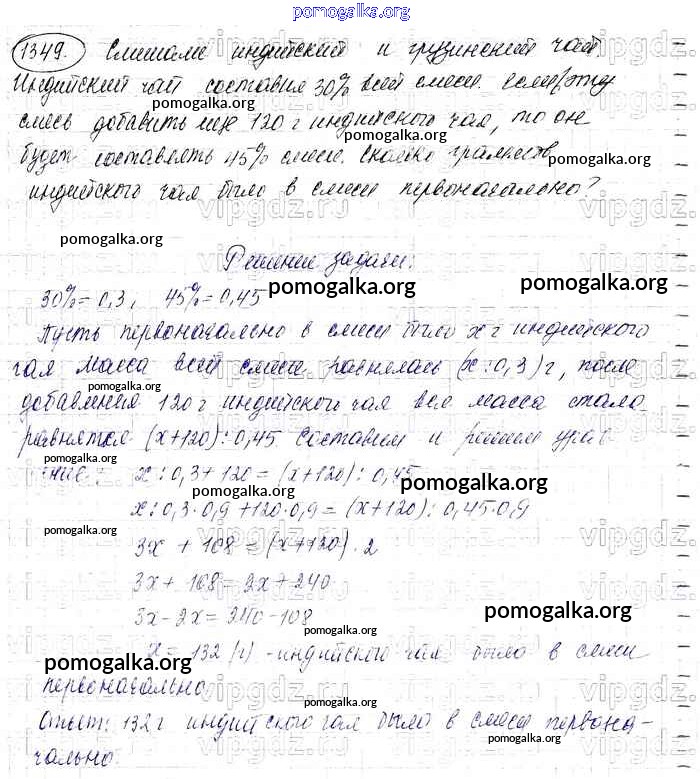 pomogalka.org
1349. Смешали индийский и грузинский чай.
Индийский чай составил 30% всей смеси. Если в эту
pomogalka.org
смесь добавить ещё 120 г индийского чая, то он
будет составлять 45% смеси. Сколько граммов
pomogalka.org
индийского чая было в смеси первоначально?
vipgdz.ru
pomogalka.org
Решение задачи:
30% = 0,3, 45% = 0,45
pomogalka.org pomogalka.org
Пусть первоначально в смеси было x г индийского
чая Масса всей смеси равнялась (x : 0,3) г, после
pomogalka.org
добавления 120 г индийского чая вся масса стала
равняться (x+120) : 0,45. Составим и решим урав-
pomogalka.org
нение: x : 0,3 + 120 = (x+120) : 0,45
pomogalka.org pomogalka.org
x : 0,3 · 0,9 + 120 · 0,9 = (x+120) : 0,45 · 0,9
pomogalka.org
3x + 108 = (x+120) · 2
3x + 108 = 2x + 240
3x - 2x = 240 - 108
pomogalka.org
pomogalka.org
x = 132 (г) - индийского чая было в смеси
pomogalka.org
первоначально
pomogalka.org
Ответ: 132 г индийского чая было в смеси первона-
pomogalka.org
чально.